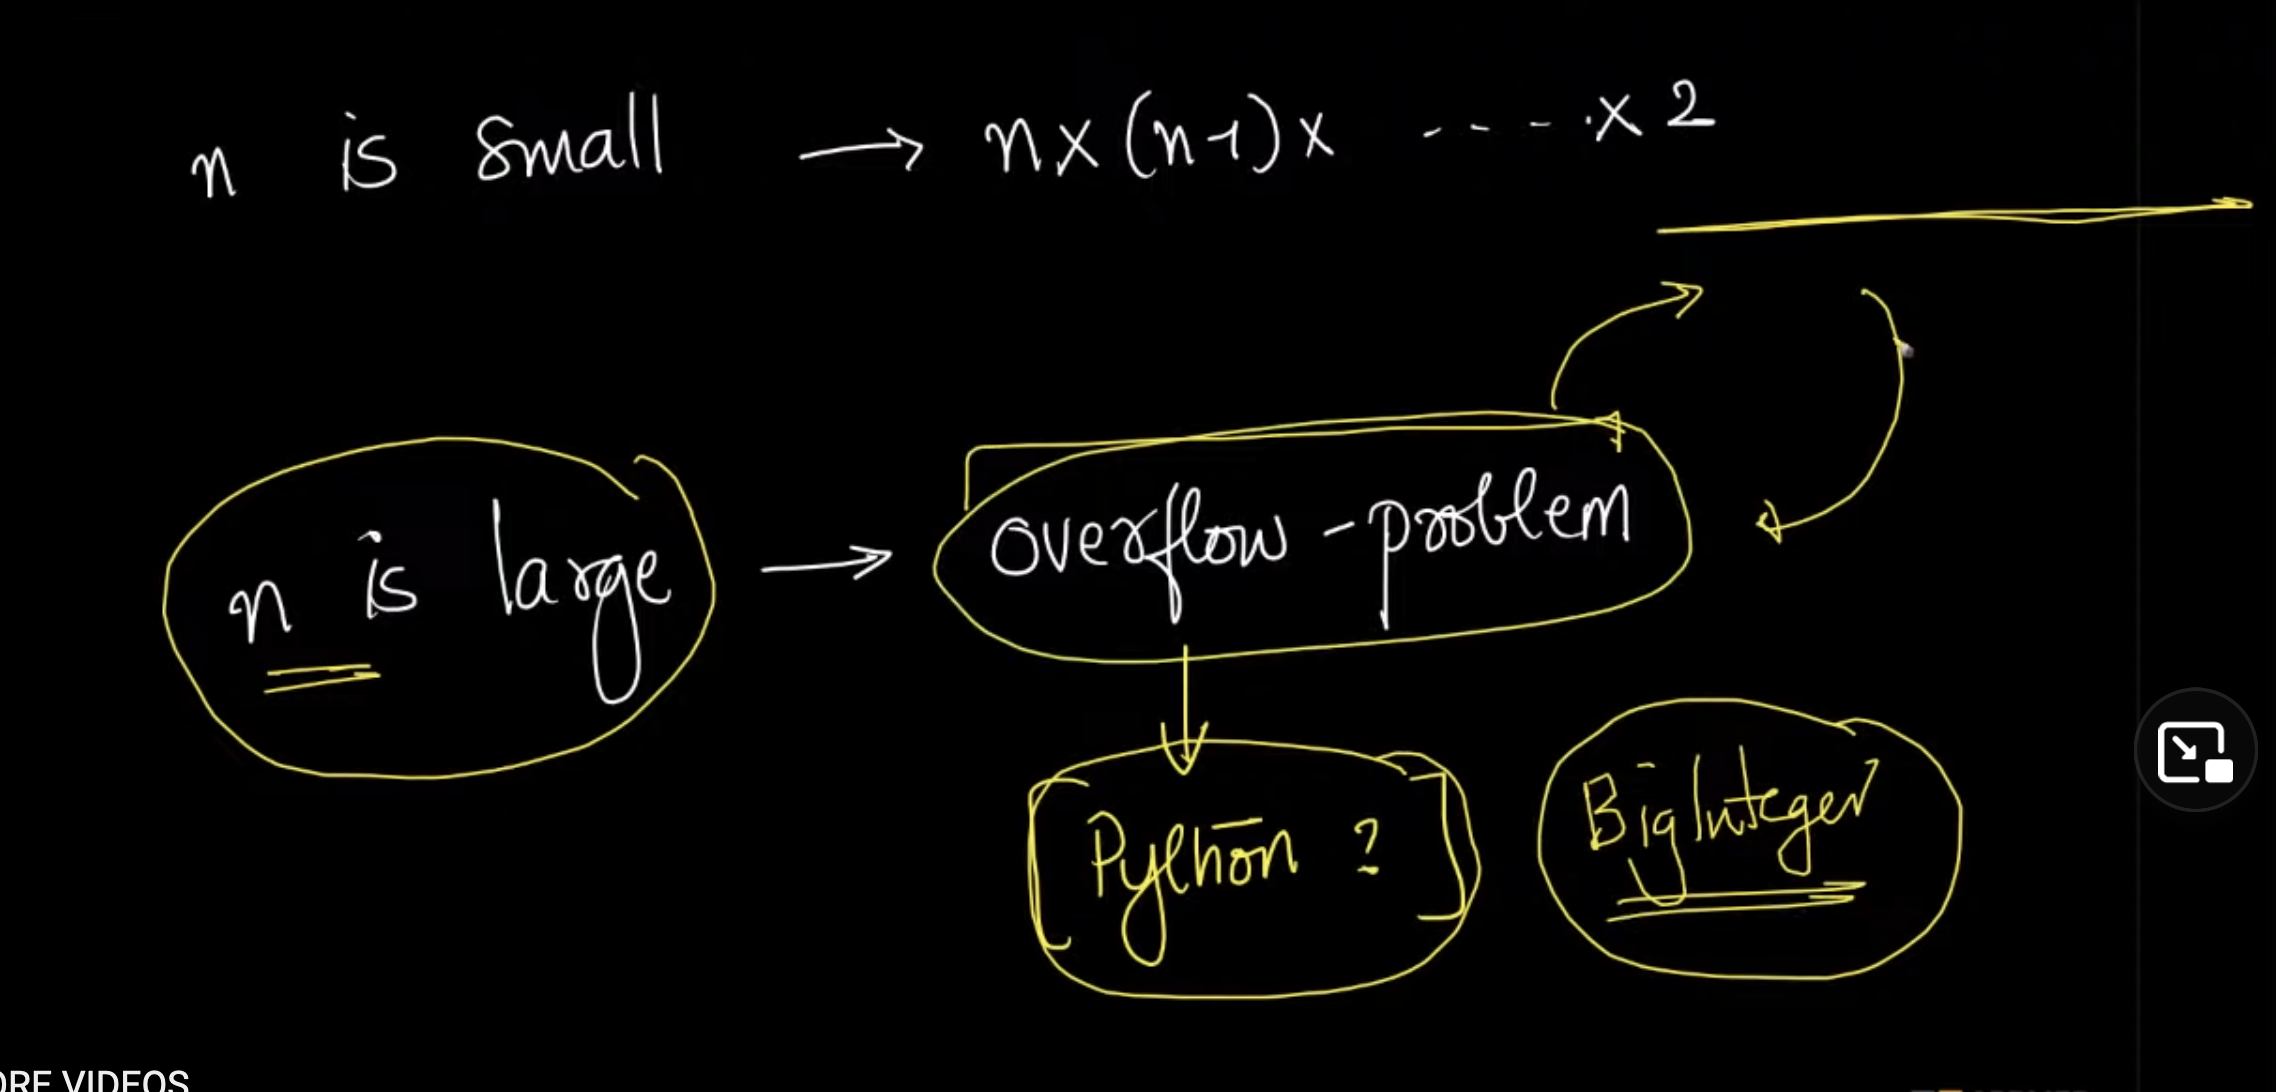 n is small → n x (n-1) x ----. x 2
n is large → overflow - problem
[Python ?] BigInteger
ORE VIDEOS